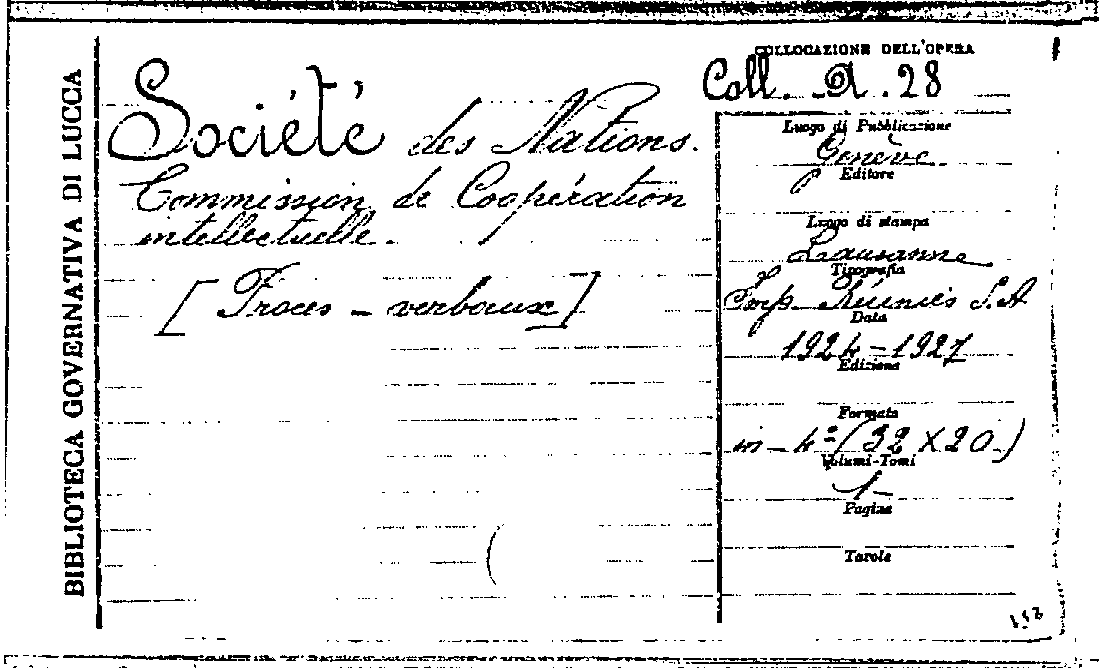 BIBLIOTECA GOVERNATIVA DI LUCCA
Société des Nations.
Commission de Coopération
intellectuelle.
[Proces-verbaux]
COLLOCAZIONE DELL'OPERA
Coll. A. 28
Luogo di Pubblicazione
Genève
Editore
Luogo di stampa
Lausanne
Tipografia
Imp. Réunies S.A
Data
1924-1927
Edizione
Formato
in-4º (32 X 20)
Volumi-Tomi
1
Pagine
Tavole